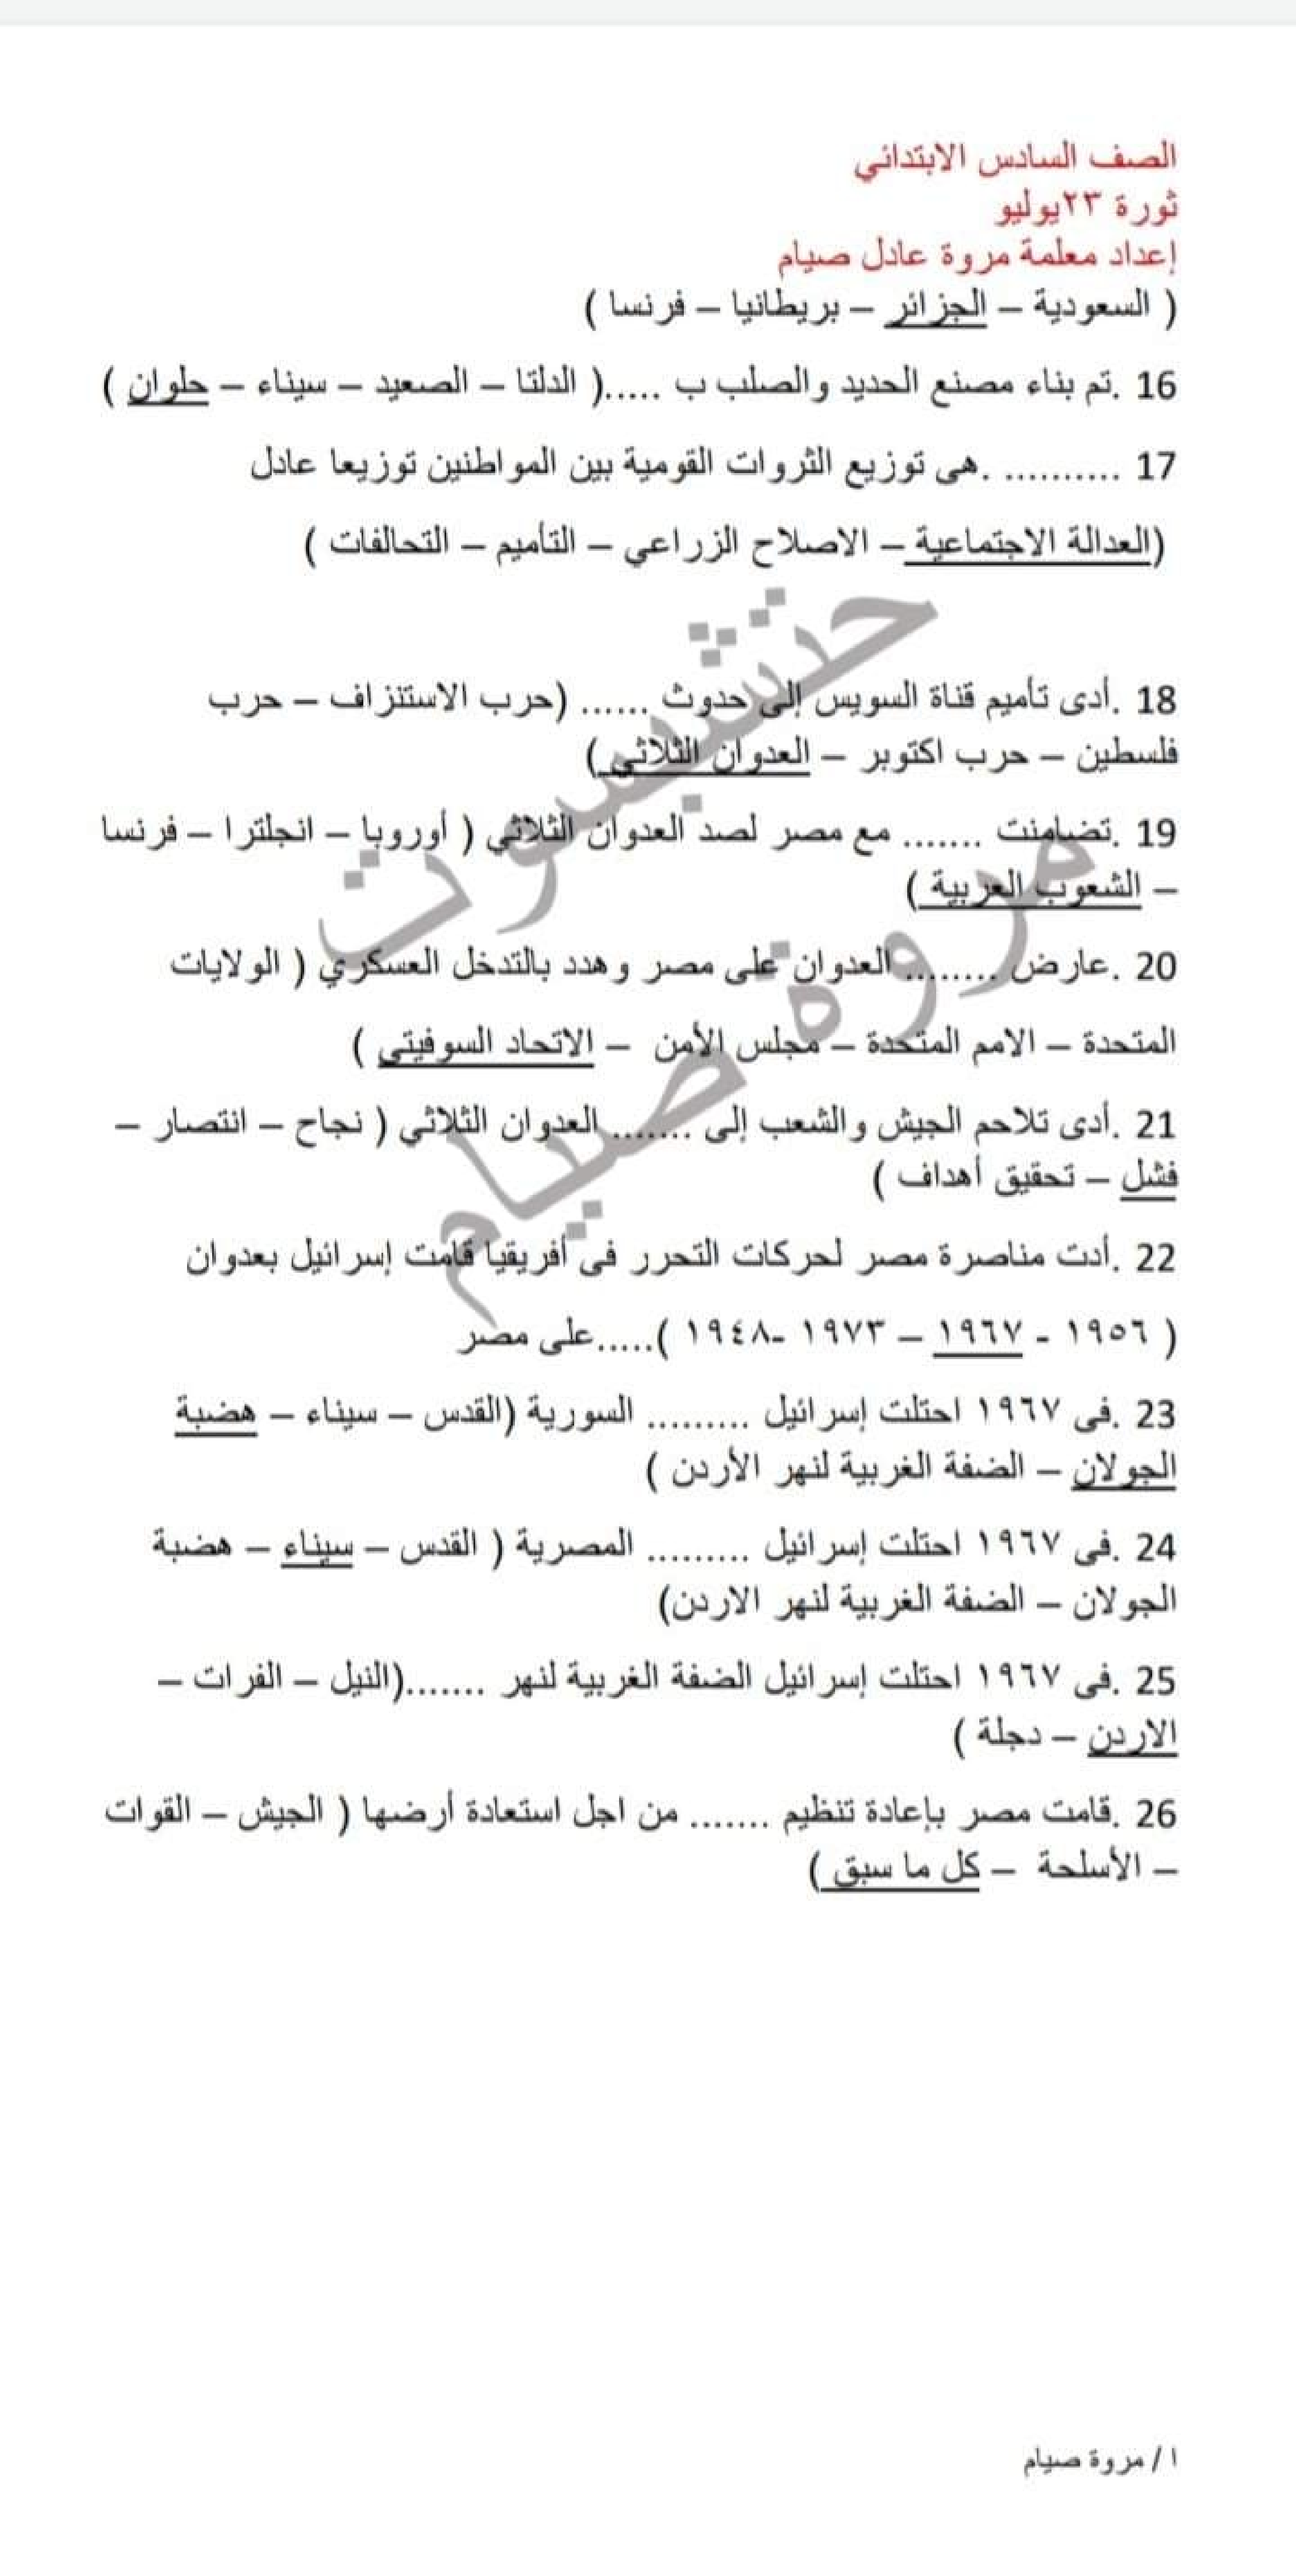 الصف السادس الابتدائي
ثورة ٢٣يوليو
إعداد معلمة مروة عادل صيام
( السعودية – الجزائر – بريطانيا – فرنسا )
16 .تم بناء مصنع الحديد والصلب ب .....( الدلتا – الصعيد – سيناء – حلوان )
17 ........... .هى توزيع الثروات القومية بين المواطنين توزيعا عادل
(العدالة الاجتماعية – الاصلاح الزراعي – التأميم – التحالفات )
18 .أدى تأميم قناة السويس إلى حدوث ...... (حرب الاستنزاف – حرب
فلسطين – حرب اكتوبر – العدوان الثلاثي )
19 .تضامنت ....... مع مصر لصد العدوان الثلاثي ( أوروبا – انجلترا – فرنسا
– الشعوب العربية )
20 .عارض ........ العدوان على مصر وهدد بالتدخل العسكري ( الولايات
المتحدة – الامم المتحدة – مجلس الأمن – الاتحاد السوفيتى )
21 .أدى تلاحم الجيش والشعب إلى ....... العدوان الثلاثي ( نجاح – انتصار –
فشل – تحقيق أهداف )
22 .أدت مناصرة مصر لحركات التحرر فى أفريقيا قامت إسرائيل بعدوان
( ١٩٥٦ - ١٩٦٧ – ١٩٧٣ -١٩٤٨ ).....على مصر
23 .فى ١٩٦٧ احتلت إسرائيل ......... السورية (القدس – سيناء – هضبة
الجولان – الضفة الغربية لنهر الأردن )
24 .فى ١٩٦٧ احتلت إسرائيل ......... المصرية ( القدس – سيناء – هضبة
الجولان – الضفة الغربية لنهر الاردن)
25 .فى ١٩٦٧ احتلت إسرائيل الضفة الغربية لنهر .......(النيل – الفرات –
الاردن – دجلة )
26 .قامت مصر بإعادة تنظيم ....... من اجل استعادة أرضها ( الجيش – القوات
– الأسلحة – كل ما سبق )
حتشبسوت
مروة صيام
ا / مروة صيام